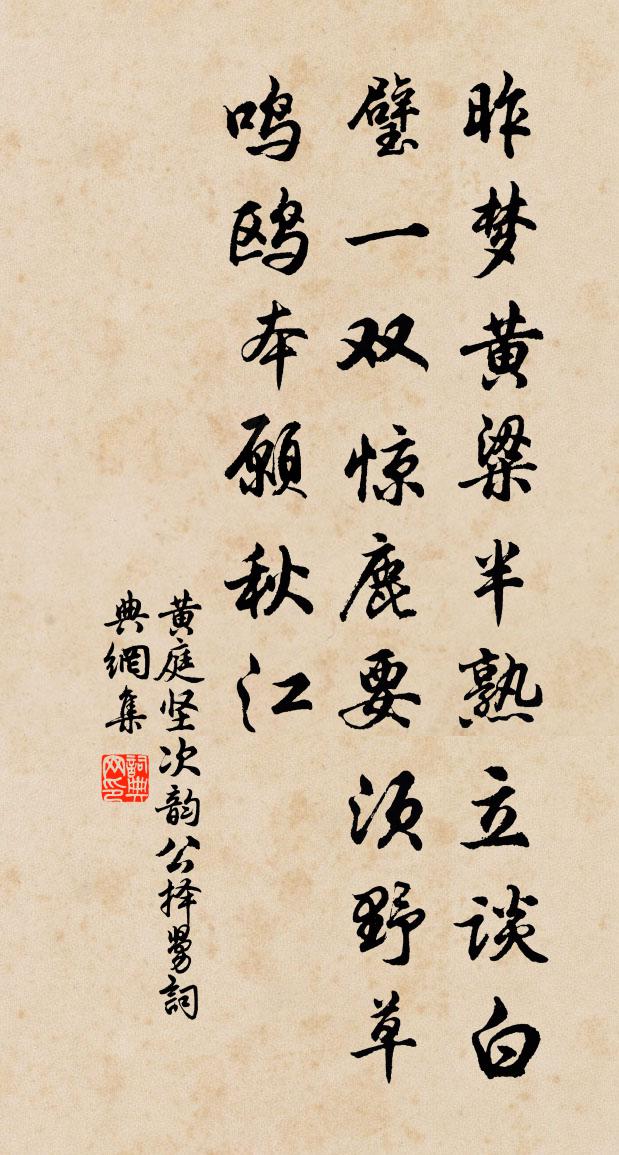 昨梦黄粱半熟立谈白
璧一双惊鹿要须野草
鸣鸥本愿秋江
黄庭坚次韵公择舅詞
典網集
詞典
网印